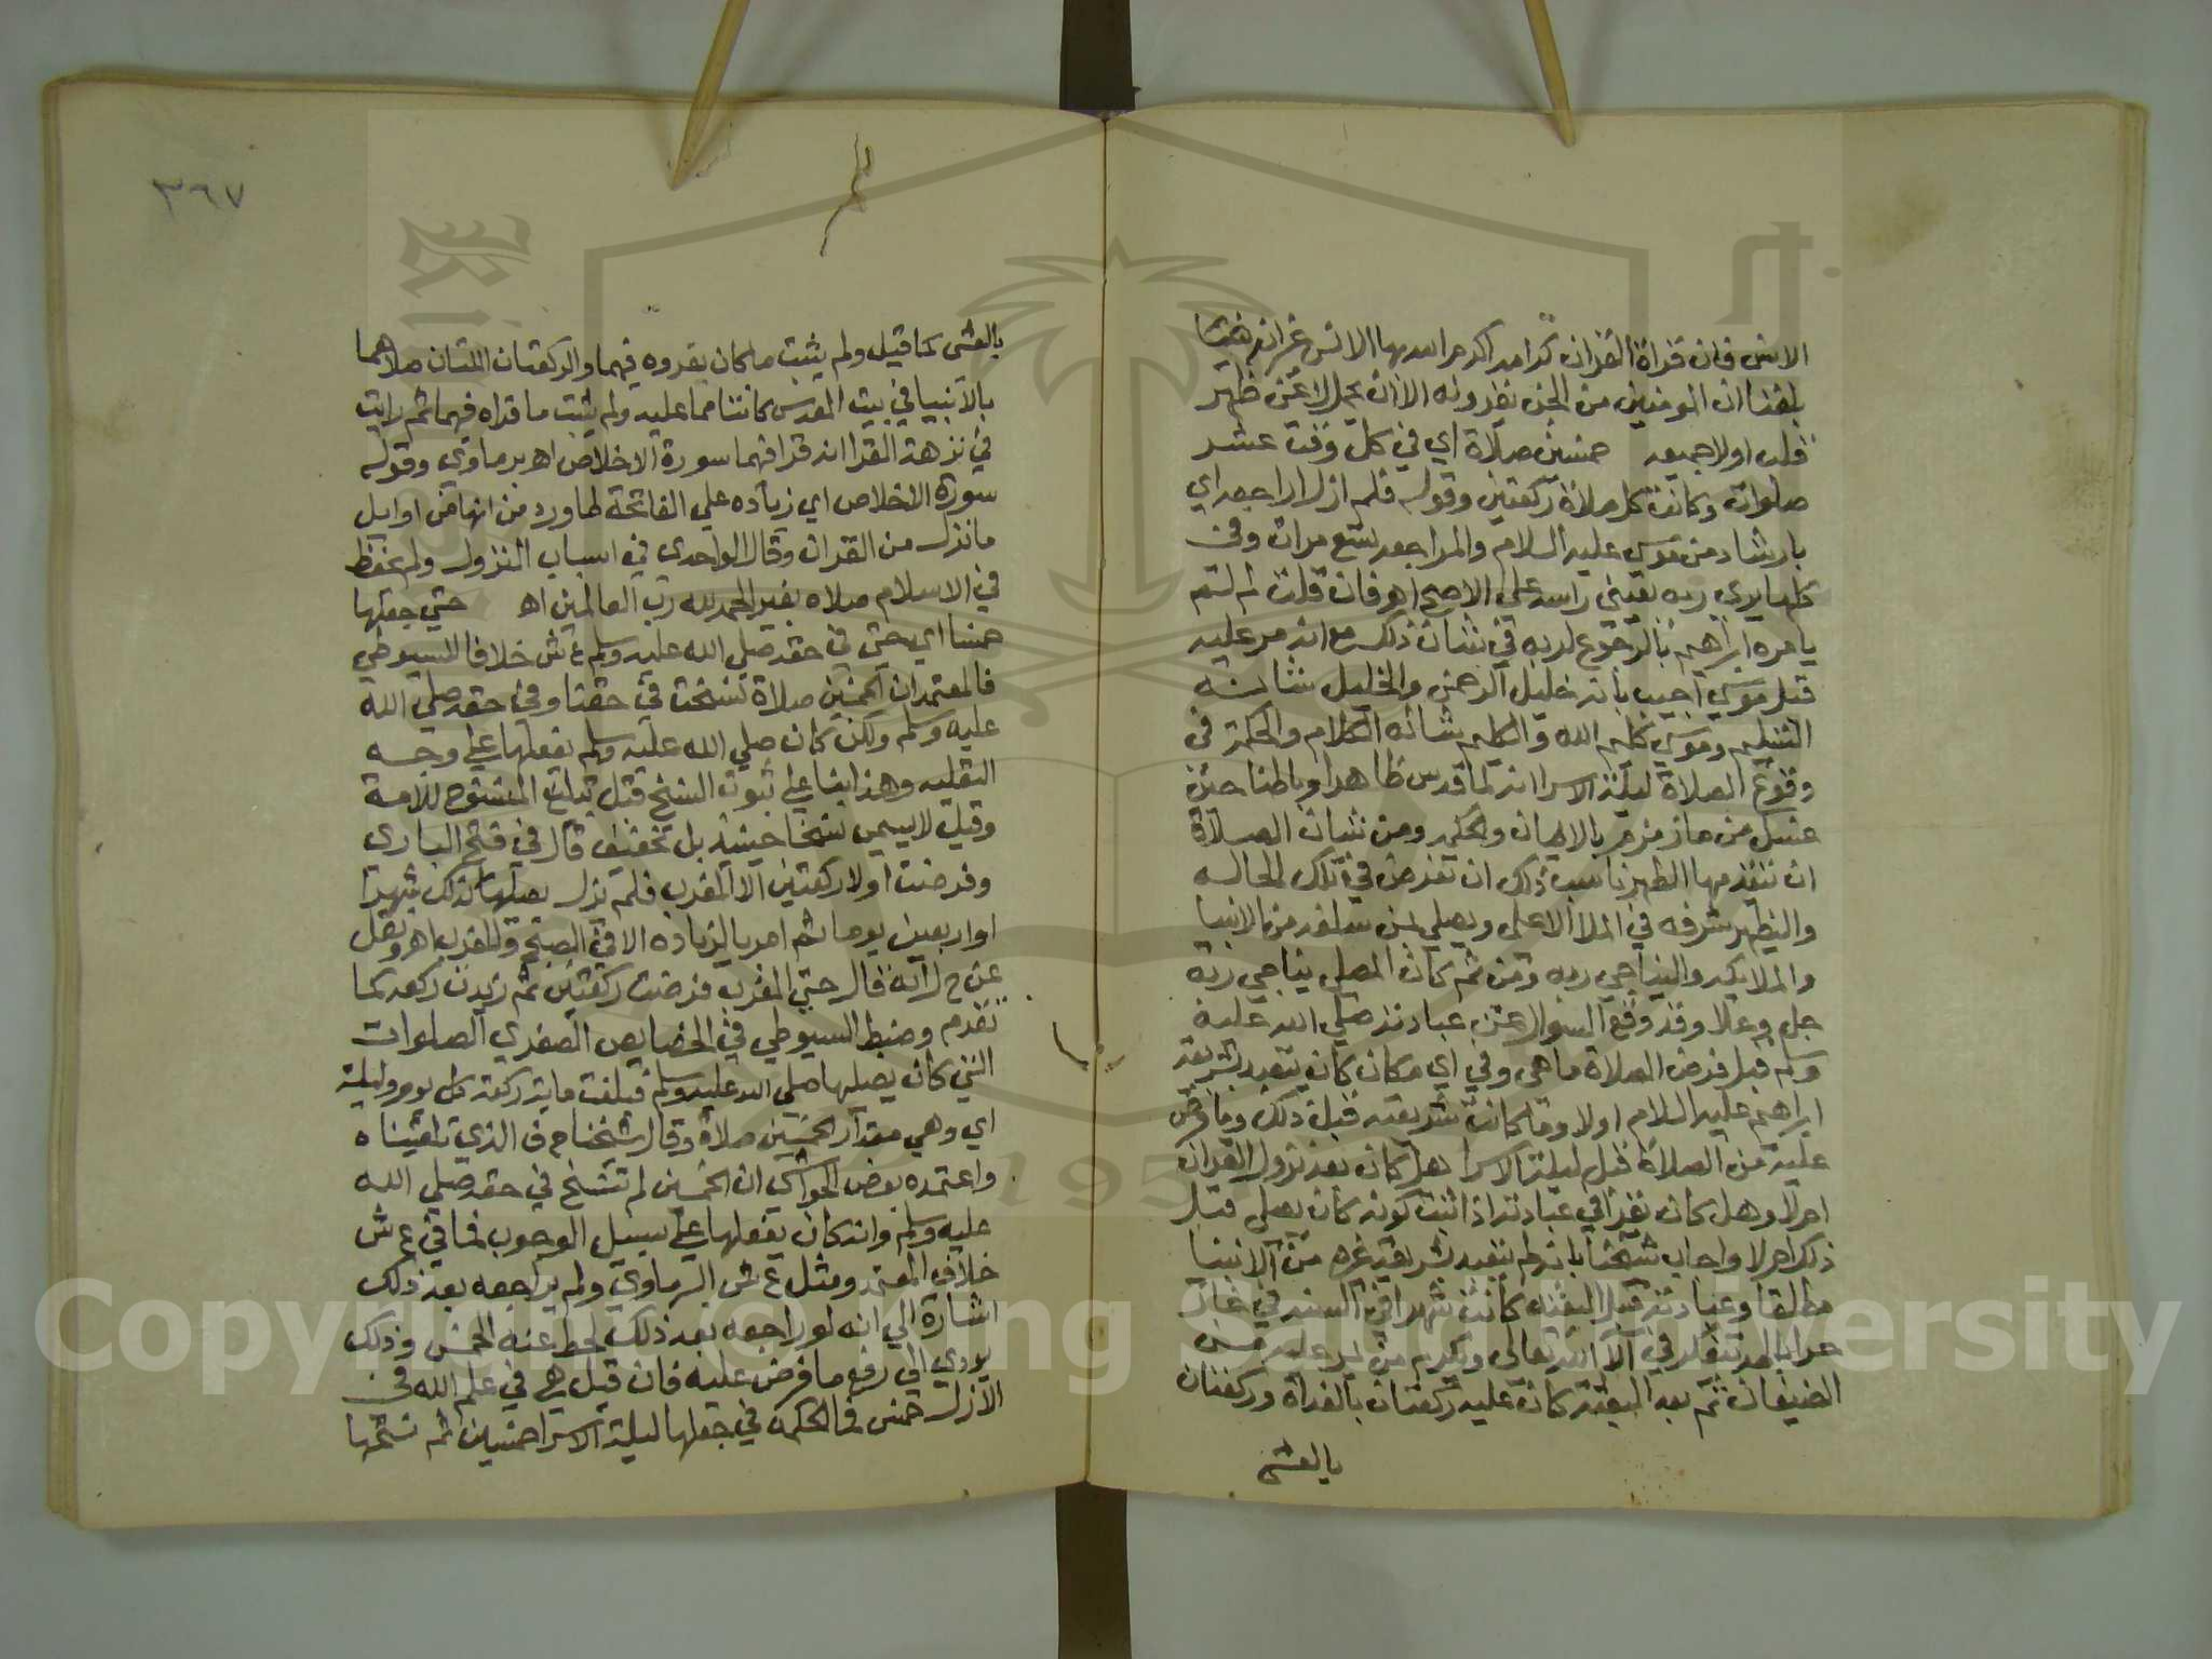 الانس فان قراة القران كرامة اكرم الله بها الانس غير انه
بلغنا ان المومنين من الجن يقرونه الا ان يحمل لا عن ظهر
قلب اولا جميعه خمسين صلاة اي في كل وقت عشر
صلوات وكانت كل صلاة ركعتين وقوله فلم ازل اراجعه اي
بارشاد من موسى عليه السلام والمراجعه تسع مرات وفي
كلها يري ربه بعيني راسه علي الاصح اهو فان قلت لم لم
يامره ابراهيم بالرجوع لربه في شان ذلك مع انه مر عليه
قبل موسي اجيب بانه خليل الرحمن والخليل شانه
التسليم وموسي كليم الله والكليم شانه الكلام والحكمة في
وقوع الصلاة ليلة الاسرا انه لما قدس ظاهرا وباطنا حين
غسل من ماء زمزم بالايمان والحكمه ومن شان الصلاة
ان يتقدمها الطهر ناسب ذلك ان تفرض في تلك الحاله
وليظهر شرفه في الملا الاعلى ويصلي بمن سلفه من الانبيا
والملايكه وليناجي ربه ومن ثم كان المصلي يناجي ربه
جل وعلا وقد وقع السوال عن عبادته صلى الله عليه
وسلم قبل فرض الصلاة ما هي وفي اي مكان كان يتعبد بشريعة
ابراهيم عليه السلام اولا وما كانت شريعته قبل ذلك وما فرض
عليه من الصلاة قبل ليلة الاسرا هل كان بعد نزول القران
ام لا وهل كان يقرا في عبادته اذا ثبت كونه كان يصلي قبل
ذلك ام لا واجاب شيخنا بانه لم يتعبد بشريعة غيره من الانبيا
مطلقا وعبادته قبل البعثه كانت شهرا في السنه في غار
حرا بالمد بتفكر في الاء الله تعالى ويكرم من مر عليه من
الضيفان ثم بعد البعثه كان عليه ركعتان بالغداة وركعتان
بالعشي
٣٦٧
بالعشى كما قيل ولم يثبت ما كان يقروه فيهما والركعتان اللتان صلاهما
بالانبيا في بيت المقدس كانتا مما عليه ولم يثبت ما قراه فيهما ثم رايت
في نزهة القرا انه قرا فيهما سورة الاخلاص اهو برماوي وقوله
سورة الاخلاص اي زياده علي الفاتحة لما ورد من انها من اوايل
ما نزل من القران وقال الواحدي في اسباب النزول ولم يحفظ
في الاسلام صلاه بغير الحمد لله رب العالمين اهـ حتي جعلها
خمسا اي حتى في حقه صلي الله عليه وسلم ع ش خلافا للسيوطي
فالمعتمد ان الخمسين صلاة نسخت في حقنا وفي حقه صلي الله
عليه وسلم ولكن كان صلي الله عليه وسلم يفعلها علي وجه
النفليه وهذا بنا علي ثبوت النسخ قبل تبليغ المنسوخ للامة
وقيل لا يسمي نسخا حينيذ بل تخفيف قال في فتح الباري
وفرضت اولا ركعتين الا المغرب فلم يزل يصليها كذلك شهرا
او اربعين يوما ثم امر بالزياده الا في الصبح والمغرب اهو ونقل
عن ح ل انه قال حتي المغرب فرضت ركعتين ثم زيدت ركعه كما
تقدم وضبط السيوطي في الخصايص الصغري الصلوات
التي كان يصليها صلي الله عليه وسلم فبلغت ماية ركعة كل يوم وليلة
اي وهي مقدار الخمسين صلاة وقال شيخنا ح ف الذي تلقيناه
واعتمده بعض الحواشي ان الخمسين لم تنسخ في حقه صلي الله
عليه وسلم وانه كان يفعلها علي سبيل الوجوب فما في ع ش
خلاف المعتمد ومثل ع ش البرماوي ولم يراجعه بعد ذلك
اشارة الي انه لو راجعه بعد ذلك لحط عنه الخمس وذلك
يودي الي رفع ما فرض عليه فان قيل هي في علم الله في
الازل خمس فما الحكمه في جعلها ليلة الاسرا خمسين ثم نسخها
Copyright © King Saud University